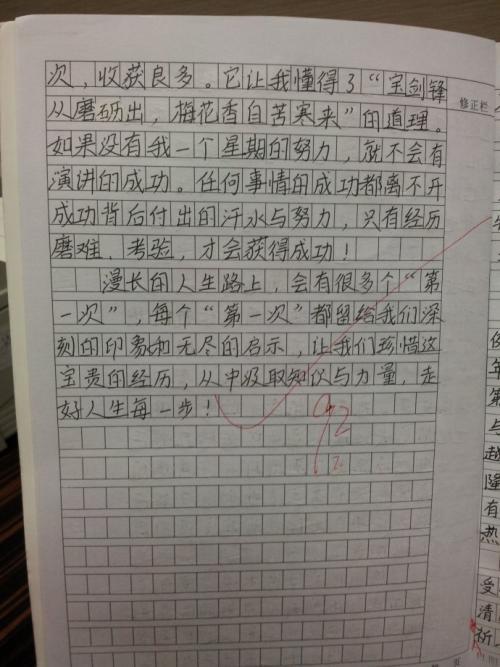 次，收获良多。它让我懂得了“宝剑锋
从磨砺出，梅花香自苦寒来”的道理。
如果没有我一个星期的努力，就不会有
演讲的成功。任何事情的成功都离不开
成功背后付出的汗水与努力，只有经历
磨难、考验，才会获得成功！
漫长的人生路上，会有很多个“第
一次”，每个“第一次”都留给我们深
刻的印象和无尽的启示，让我们珍惜这
宝贵的经历，从中吸取知识与力量，走
好人生每一步！
92
修正栏
年
第
与
越
隆
有
热
受
清
祈